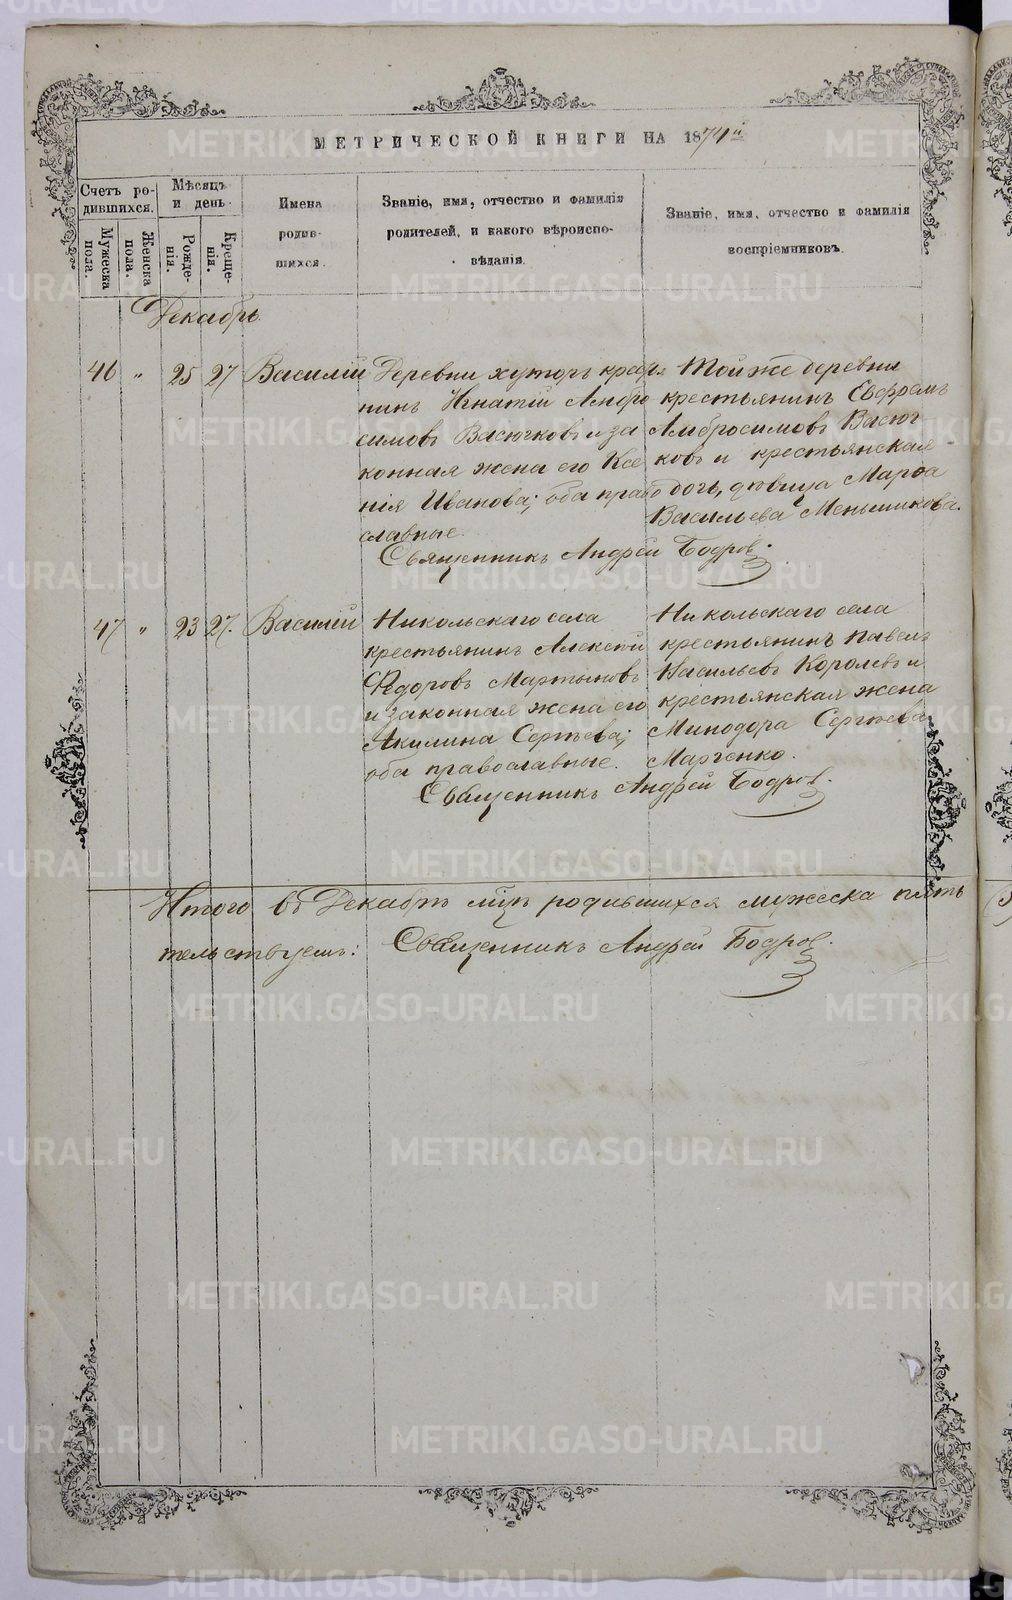 МЕТРИЧЕСКОЙ КНИГИ НА 1874й
Счетъ ро-
дившихся.
Мужеска
пола.
Женска
пола.
Мѣсяцъ
и день
Рожде-
нія.
Креще-
нія.
Имена
родив-
шихся.
Званіе, имя, отчество и фамилія
родителей, и какого вѣроиспо-
вѣданія.
Званіе, имя, отчество и фамилія
воспріемниковъ.
Декабрь
46 " 25 27 Василій
Деревни хуторъ кресть
нинъ Игнатій Амбро
симовъ Васючковъ и за
конная жена его Ксе
нія Иванова; оба право
славные.
Той же деревни
крестьянинъ Ефремъ
Амбросимовъ Васюч
ковъ и крестьянская
дочь, дѣвица Марѳа
Васильева Меньшикова.
Священникъ Андрей Бодровъ.
47 " 23 27. Василій
Никольскаго села
крестьянинъ Алексѣй
Ѳедоровъ Мартыновъ
и законная жена его
Акилина Сергѣева;
оба православные.
Никольскаго села
крестьянинъ Павелъ
Васильевъ Королевъ и
крестьянская жена
Минодора Сергѣева
Марченко.
Священникъ Андрей Бодровъ.
Итого въ Декабрѣ мцѣ родившихся мужеска пять
тельствуемъ: Священникъ Андрей Бодровъ.
METRIKI.GASO-URAL.RU